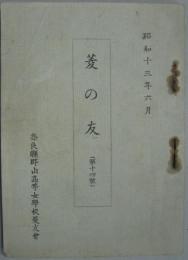 昭和十三年六月
菱の友
(第十四號)
奈良縣郡山高等女學校菱友會